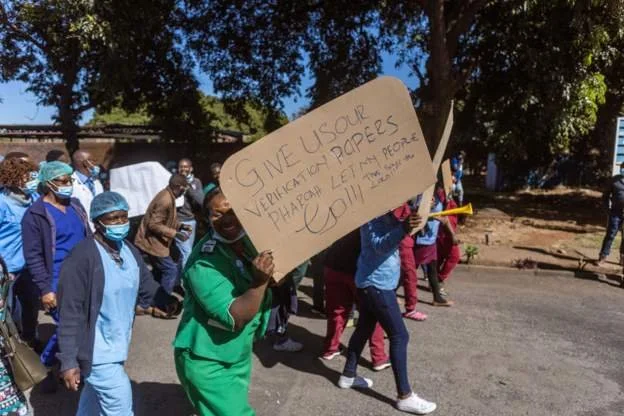 GIVE US OUR
VERIFICATION PAPERS
PHAROAH LET MY PEOPLE
Go!!!